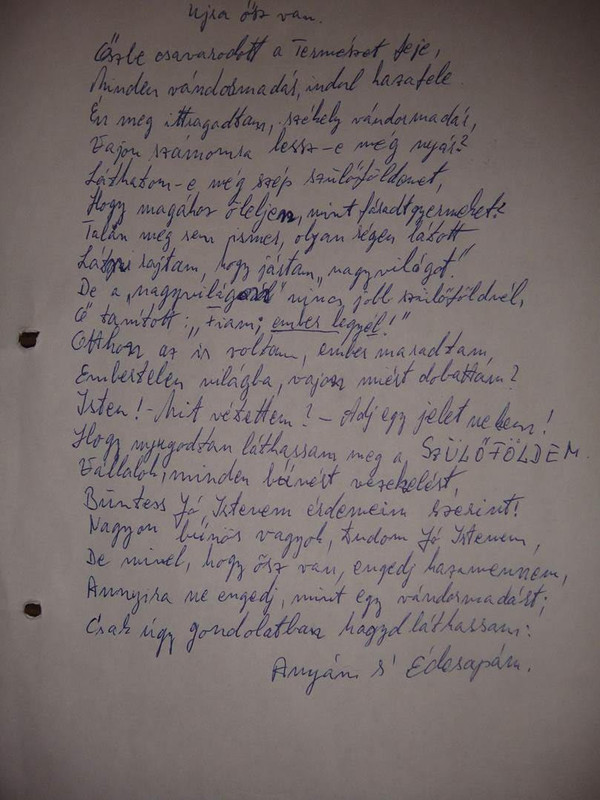 Ujra ősz van.
Őszbe csavarodott a Természet feje,
Minden vándormadár, indul hazafele
Én meg ittragadtam, székely vándormadár,
Vajon számomra lessz-e még nyár?
Láthatom-e még szép szülőföldemet,
Hogy magához öleljen, mint fáradt gyermeket?
Talán még sem ismer, olyan régen látott
Látni rajtam, hogy jártam "nagyvilágot."
De a "nagyvilágnál" nincs jobb szülőföldnél,
Ő tanított: "Fiam; ember legyél!"
Otthon az is voltam, ember maradtam,
Embertelen világba, vajon miért dobattam?
Isten! - Mit vétettem? - Adj egy jelet nekem!
Hogy nyugodtan láthassam meg a SZÜLŐFÖLDEM.
Vállalok, minden bűnért vezeklést,
Büntess Jó Istenem érdemeim szerint!
Nagyon bűnös vagyok, tudom Jó Istenem,
De mivel, hogy ősz van, engedj hazamennem,
Annyira ne engedj, mint egy vándormadárt;
Csak úgy gondolatban hagyd láthassam:
Anyám s' Édesapám.